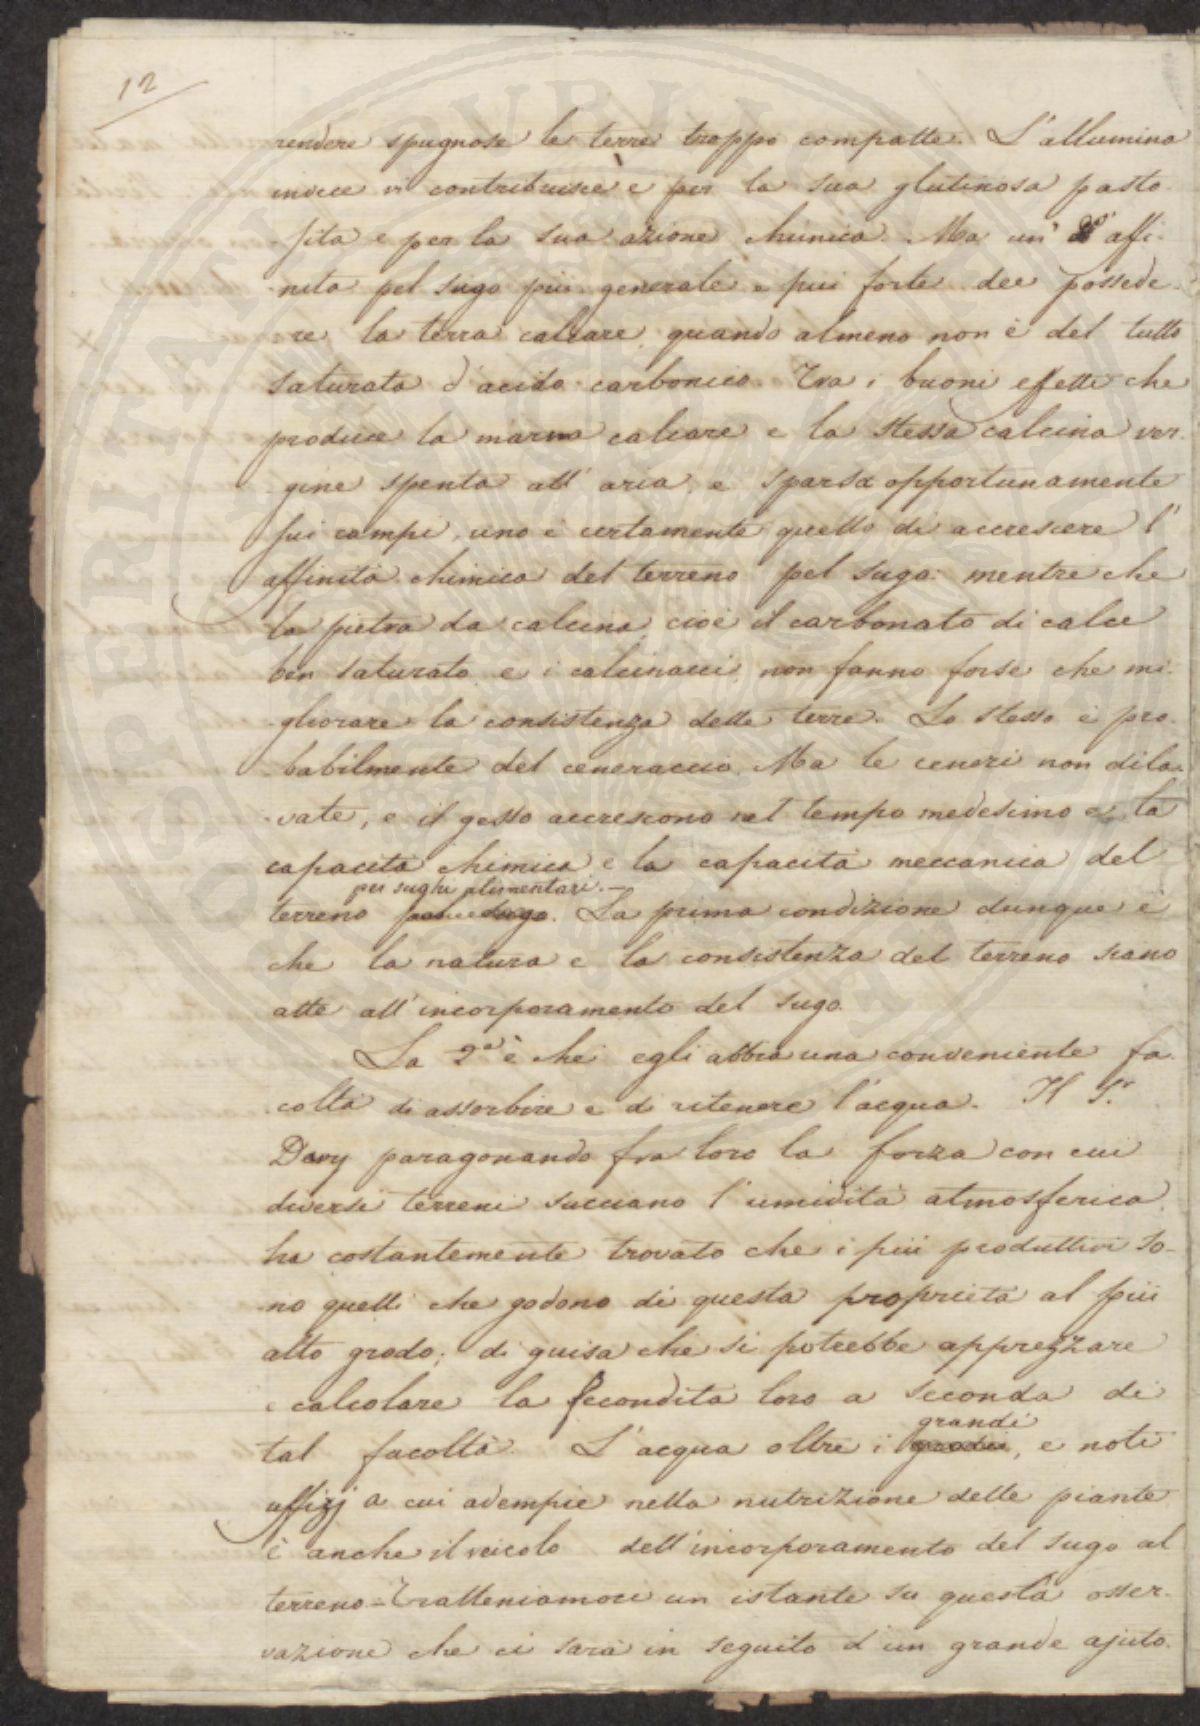 12
rendere spugnose le terre troppo compatte. L'allumina
invece vi contribuisce e per la sua glutinosa pasto-
sità e per la sua azione chimica. Ma un' affi-
nità pel sugo più generale e più forte dee possede-
re la terra calcare, quando almeno non è del tutto
saturata d'acido carbonico. Tra i buoni effetti che
produce la marna calcare e la stessa calcina ver-
gine spenta all'aria, e sparsa opportunamente
sui campi, uno è certamente quello di accrescere l'
affinità chimica del terreno pel sugo: mentre che
la pietra da calcina, cioè il carbonato di calce
ben saturato, e i calcinacci non fanno forse che mi-
gliorare la consistenza delle terre. Lo stesso è pro-
babilmente del ceneraccio. Ma le ceneri non dila-
vate, e il gesso accrescono nel tempo medesimo e la
capacità chimica e la capacità meccanica del
per sughi alimentari.
terreno. La prima condizione dunque è
che la natura e la consistenza del terreno siano
atte all'incorporamento del sugo.
La 2a è che egli abbia una conveniente fa-
coltà di assorbire e di ritenere l'acqua. Il S.r
Davy paragonando fra loro la forza con cui
diversi terreni succiano l'umidità atmosferica,
ha costantemente trovato che i più produttivi so-
no quelli che godono di questa proprietà al più
alto grado; di guisa che si potrebbe apprezzare
e calcolare la fecondità loro a seconda di
tal facoltà. L'acqua oltre i
grandi
, e noti
uffizj a cui adempie nella nutrizione delle piante
è anche il veicolo dell'incorporamento del sugo al
terreno - Tratteniamoci un istante su questa osser-
vazione che ci sarà in seguito d'un grande ajuto.